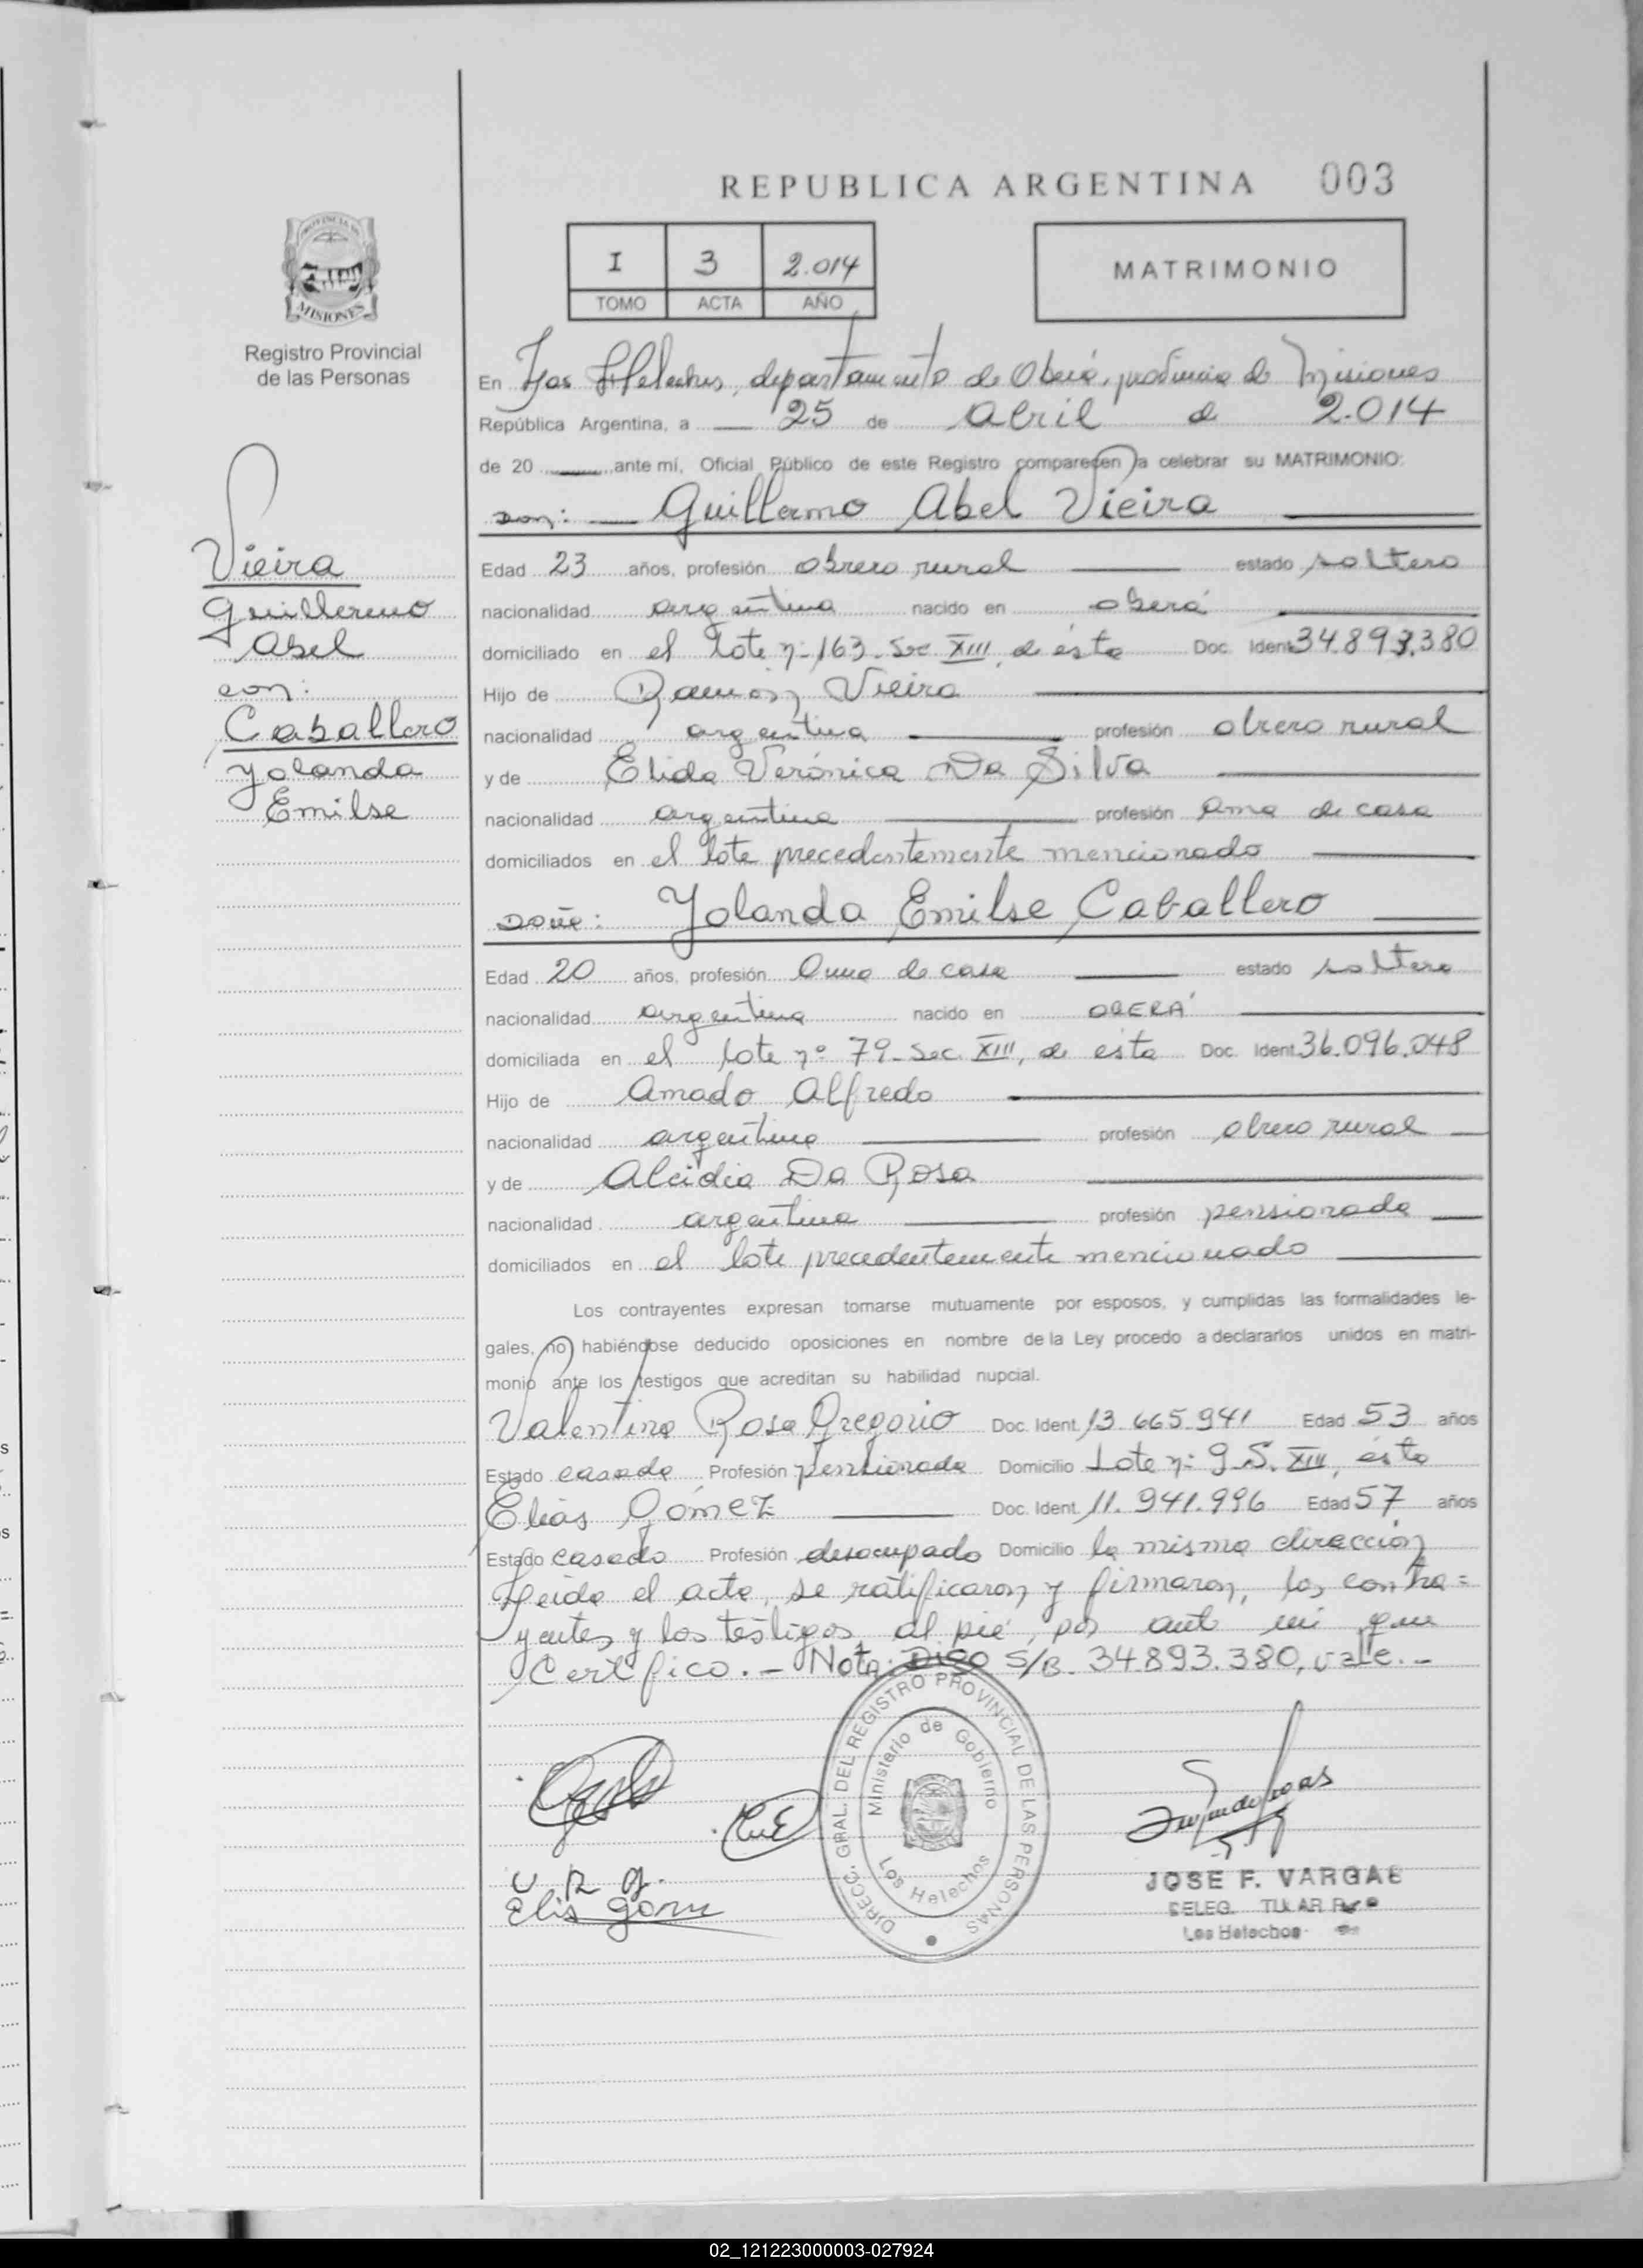 REPUBLICA ARGENTINA 003
PROVINCIA DE
MISIONES
Registro Provincial
de las Personas
I 3 2.014
TOMO ACTA AÑO
MATRIMONIO
En Los Helechos, departamento de Oberá, provincia de Misiones
República Argentina, a 25 de abril de 2.014
de 20 ante mí, Oficial Público de este Registro comparecen a celebrar su MATRIMONIO:
Don: Guillermo Abel Vieira
Edad 23 años, profesión obrero rural estado soltero
nacionalidad argentina nacido en oberá
domiciliado en el lote nº 163 Sec XIII, de ésta Doc. Ident. 34.893.380
Hijo de Ramón Vieira
nacionalidad argentina profesión obrero rural
y de Elida Verónica Da Silva
nacionalidad argentina profesión ama de casa
domiciliados en el lote precedentemente mencionado
Doña: Yolanda Emilse Caballero
Edad 20 años, profesión Ama de casa estado soltera
nacionalidad argentina nacido en OBERÁ
domiciliada en el lote nº 79 Sec. XIII, de ésta Doc. Ident. 36.096.048
Hijo de Amado Alfredo
nacionalidad argentina profesión obrero rural
y de Alcidia Da Rosa
nacionalidad argentina profesión pensionada
domiciliados en el lote precedentemente mencionado
Los contrayentes expresan tomarse mutuamente por esposos, y cumplidas las formalidades le-
gales, no habiéndose deducido oposiciones en nombre de la Ley procedo a declararlos unidos en matri-
monio ante los testigos que acreditan su habilidad nupcial.
Valentina Rosa Gregorio Doc. Ident. 13.665.941 Edad 53 años
Estado casada Profesión pensionada Domicilio Lote nº 9 S. XIII, ésta
Elias Gómez Doc. Ident. 11.941.996 Edad 57 años
Estado casado Profesión desocupado Domicilio la misma dirección
Leida el acta, se ratificaron y firmaron, los contra=
yentes y los testigos al pié, por ante mi que
Certifico.- Nota: DIGO S/B. 34.893.380, vale.-
Vieira
Guillermo
Abel
con:
Caballero
Yolanda
Emilse
DIRECC. GRAL. DEL REGISTRO PROVINCIAL DE LAS PERSONAS
Ministerio de Gobierno
Los Helechos
V. R. G.
Elis Gomz
JOSE F. VARGAS
DELEG. TITULAR
Los Helechos
02_121223000003-027924